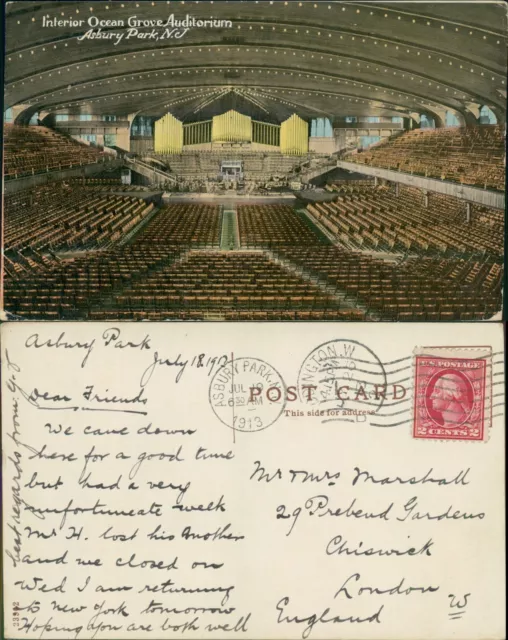 Interior Ocean Grove Auditorium
Asbury Park, N.J
Asbury Park
July 18, 1913
Dear Friends
We came down
here for a good time
but had a very
unfortuneate week
Mr H. lost his Mother
and we closed on
Wed I am returning
to new york tomorrow
Hoping you are both well
best regards from
POST CARD
This side for address
ASBURY PARK, N.J.
JUL 19
6 AM
1913
U.S. POSTAGE
2 CENTS 2
Mr Mrs Marshall
29 Prebend Gardens
Chiswick
London
W
England